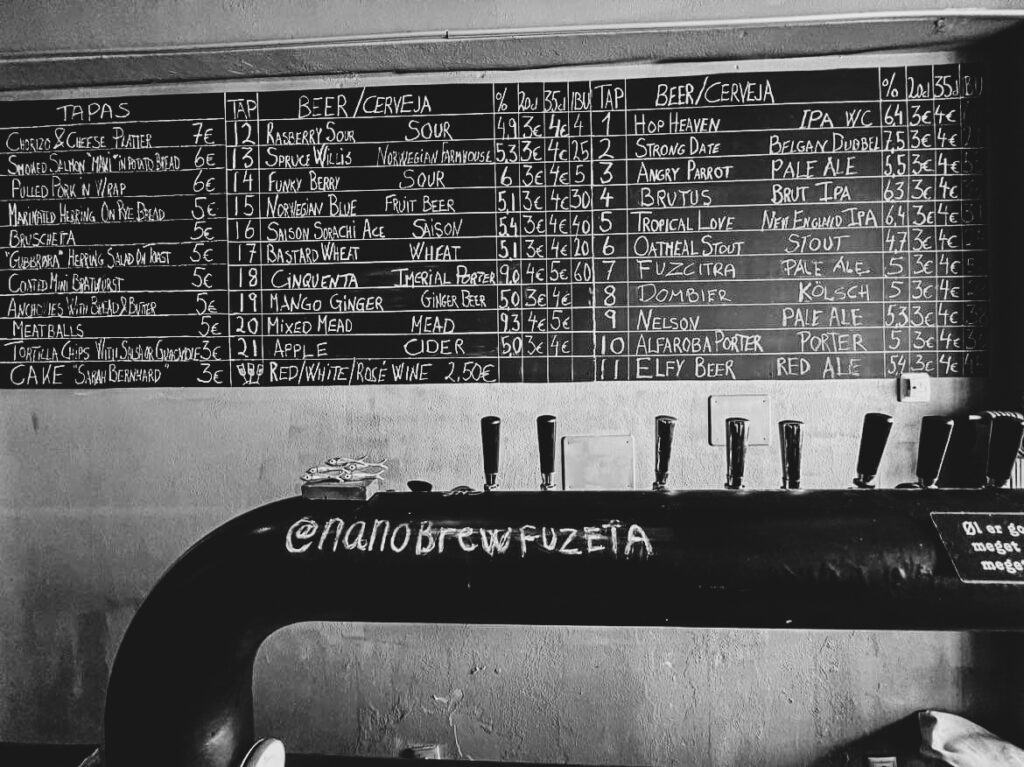 TAPAS
CHORIZO & CHEESE PLATTER 7€
SMOKED SALMON "MAKI" IN POTATO BREAD 6€
PULLED PORK N WRAP 6€
MARINATED HERRING ON RYE BREAD 5€
BRUSCHETTA 5€
HERRING SALAD ON TOAST 5€
COATED MINI BRATWURST 5€
ANCHOVIES WITH BREAD & BUTTER 5€
MEATBALLS 5€
TORTILLA CHIPS WITH SALSA OR GUACAMOLE 3€
CAKE "SARAH BERNHARD" 3€
TAP BEER/CERVEJA % 20cl 35cl IBU
12 RASBERRY SOUR SOUR 4,9 3€ 4€ 4
13 SPRUCE WILLIS NORWEGIAN FARMHOUSE 5,3 3€ 4€ 25
14 FUNKY BERRY SOUR 6 3€ 4€ 5
15 NORWEGIAN BLUE FRUIT BEER 5,1 3€ 4€ 30
16 SAISON SORACHI ACE SAISON 5,4 3€ 4€ 40
17 BASTARD WHEAT WHEAT 5,1 3€ 4€ 20
18 CINQUENTA IMERIAL PORTER 9,0 4€ 5€ 60
19 MANGO GINGER GINGER BEER 5,0 3€ 4€
20 MIXED MEAD MEAD 9,3 4€ 5€
21 APPLE CIDER 5,0 3€ 4€
RED/WHITE/ROSÉ WINE 2,50€
TAP BEER/CERVEJA % 20cl 35cl IBU
1 HOP HEAVEN IPA WC 6,4 3€ 4€
2 STRONG DATE BELGAN DUBBEL 7,5 3€ 4€
3 ANGRY PARROT PALE ALE 5,5 3€ 4€
4 BRUTUS BRUT IPA 6,3 3€ 4€
5 TROPICAL LOVE NEW ENGLAND IPA 6,4 3€ 4€
6 OATMEAL STOUT STOUT 4,7 3€ 4€
7 FUZCITRA PALE ALE 5 3€ 4€
8 DOMBIER KÖLSCH 5 3€ 4€
9 NELSON PALE ALE 5,3 3€ 4€
10 ALFAROBA PORTER PORTER 5 3€ 4€
11 ELFY BEER RED ALE 5,4 3€ 4€
@nanoBrewFUZETA
Øl er go
meget
mege